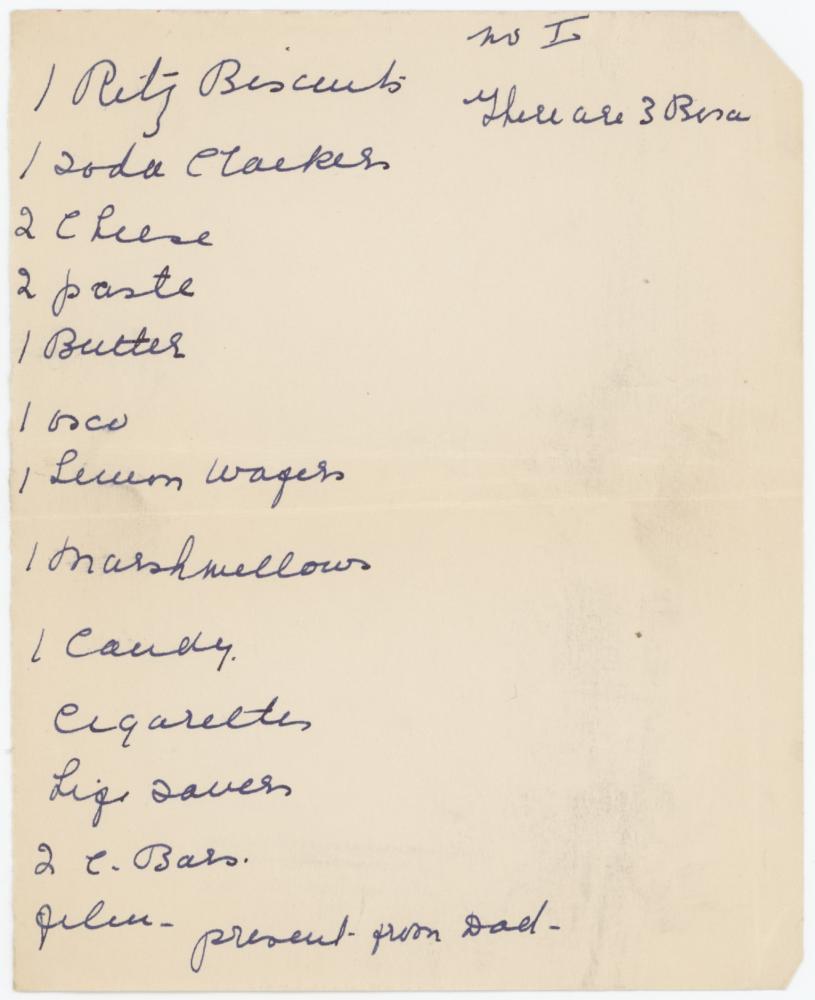 no I
There are 3 Boxa
1 Ritz Biscuits
1 Soda Crackers
2 Cheese
2 paste
1 Butter
1
1 Lemon Wafers
1 Marshmellows
1 Candy.
Cigarettes
Life Savers
2 C. Bars.
film - present from Dad -